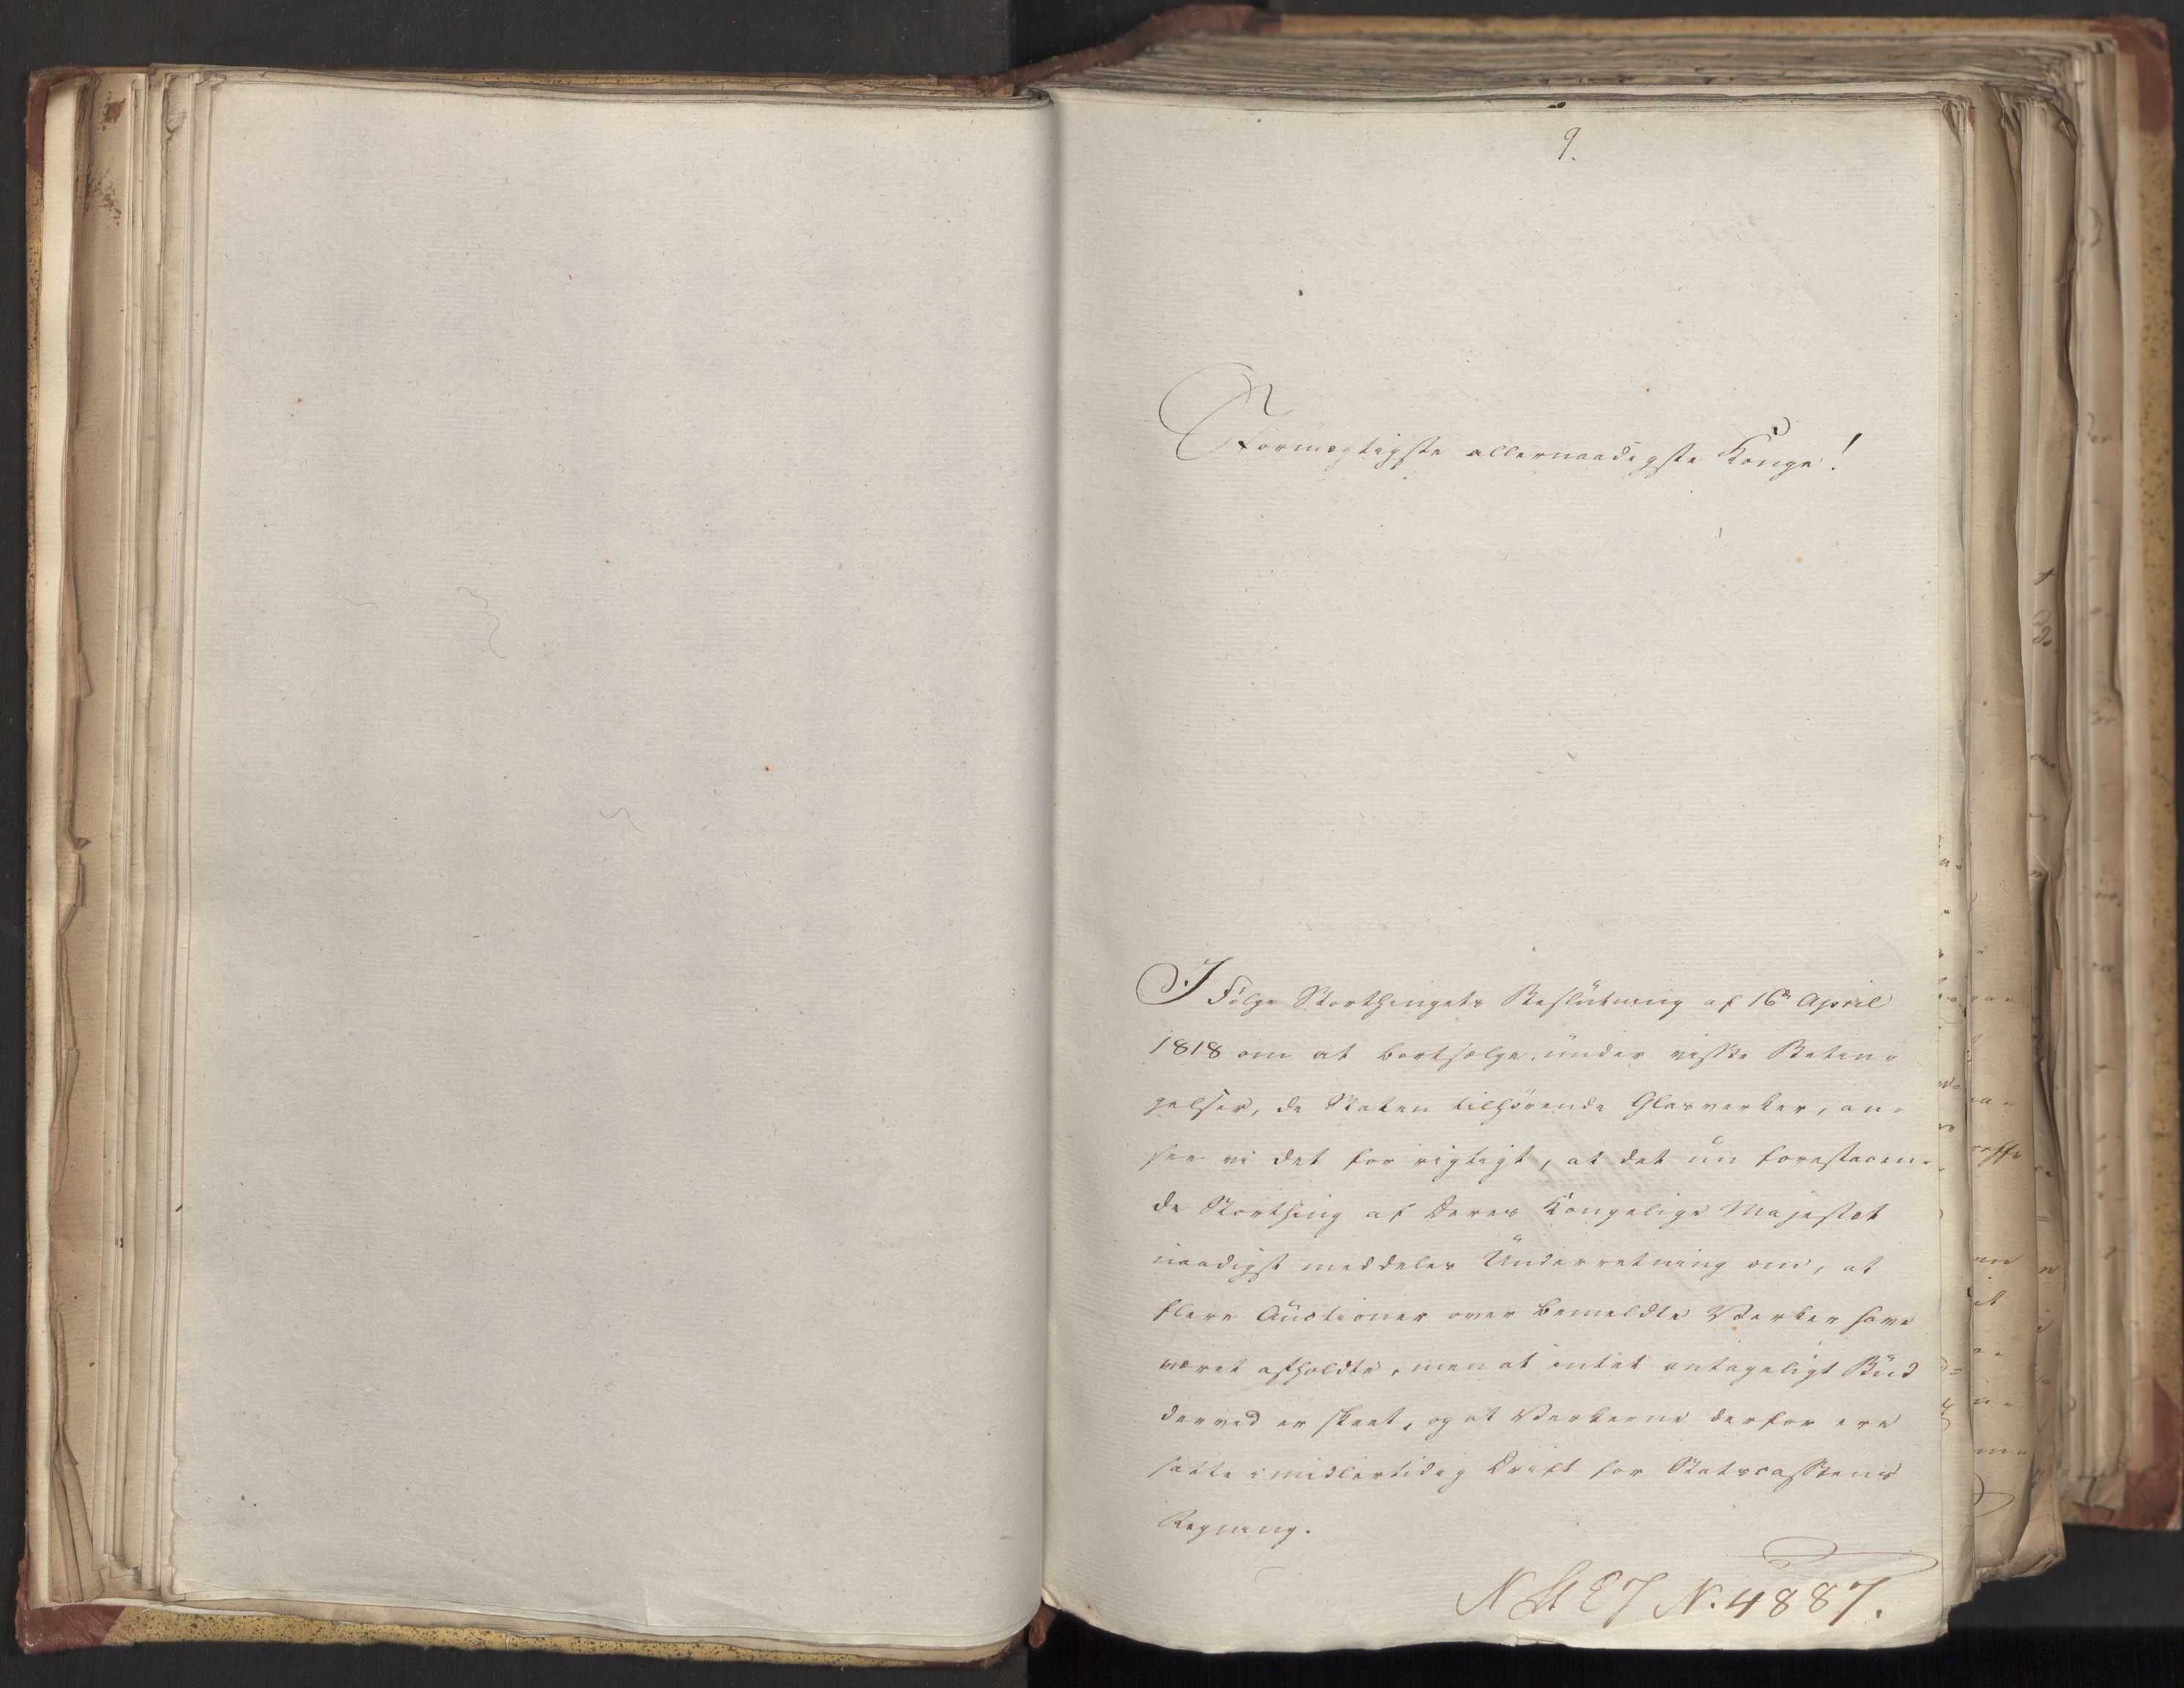 9.
Stormægtigste allernaadigste Konge!
I Følge Storthingets Beslutning af 16de April
1818 om at bortsælge, under visse Betin-
gelser, de Staten tilhørende Glasverker, an-
see vi det for rigtigt, at det nu forestaaen-
de Storthing af Deres Kongelige Majestæt
naadigst meddeles Underretning om, at
flere Auctioner over bemeldte Verker have
været afholdte, men at intet antageligt Bud
derved er skeet, og at Verkerne derfor ere
satte i midlertidig Drift for Statscassens
Regning.
N St E J N. 4887.